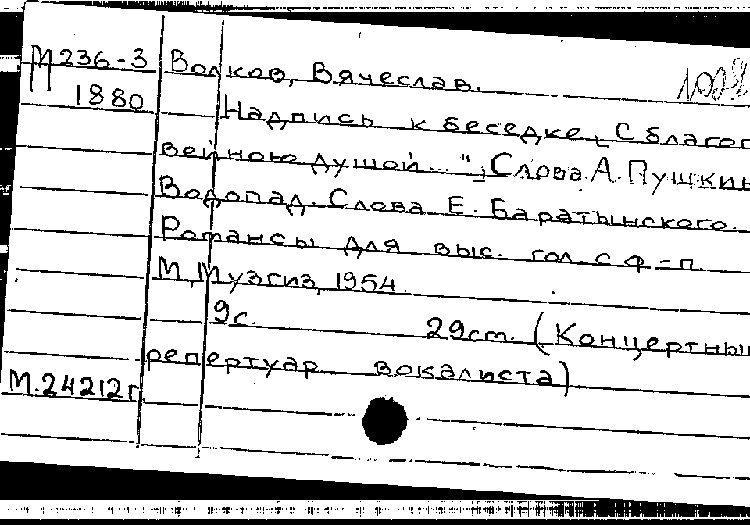 М 236-3 Волков, Вячеслав.
1880 Надпись к беседке „С благо
вейною душой..."; Слова А. Пушкин
Водопад. Слова Е. Баратынского.
Романсы для выс. гол. с ф-п.
М., Музгиз, 1954.
9с. 29см. (Концертны
репертуар вокалиста)
М.24212г